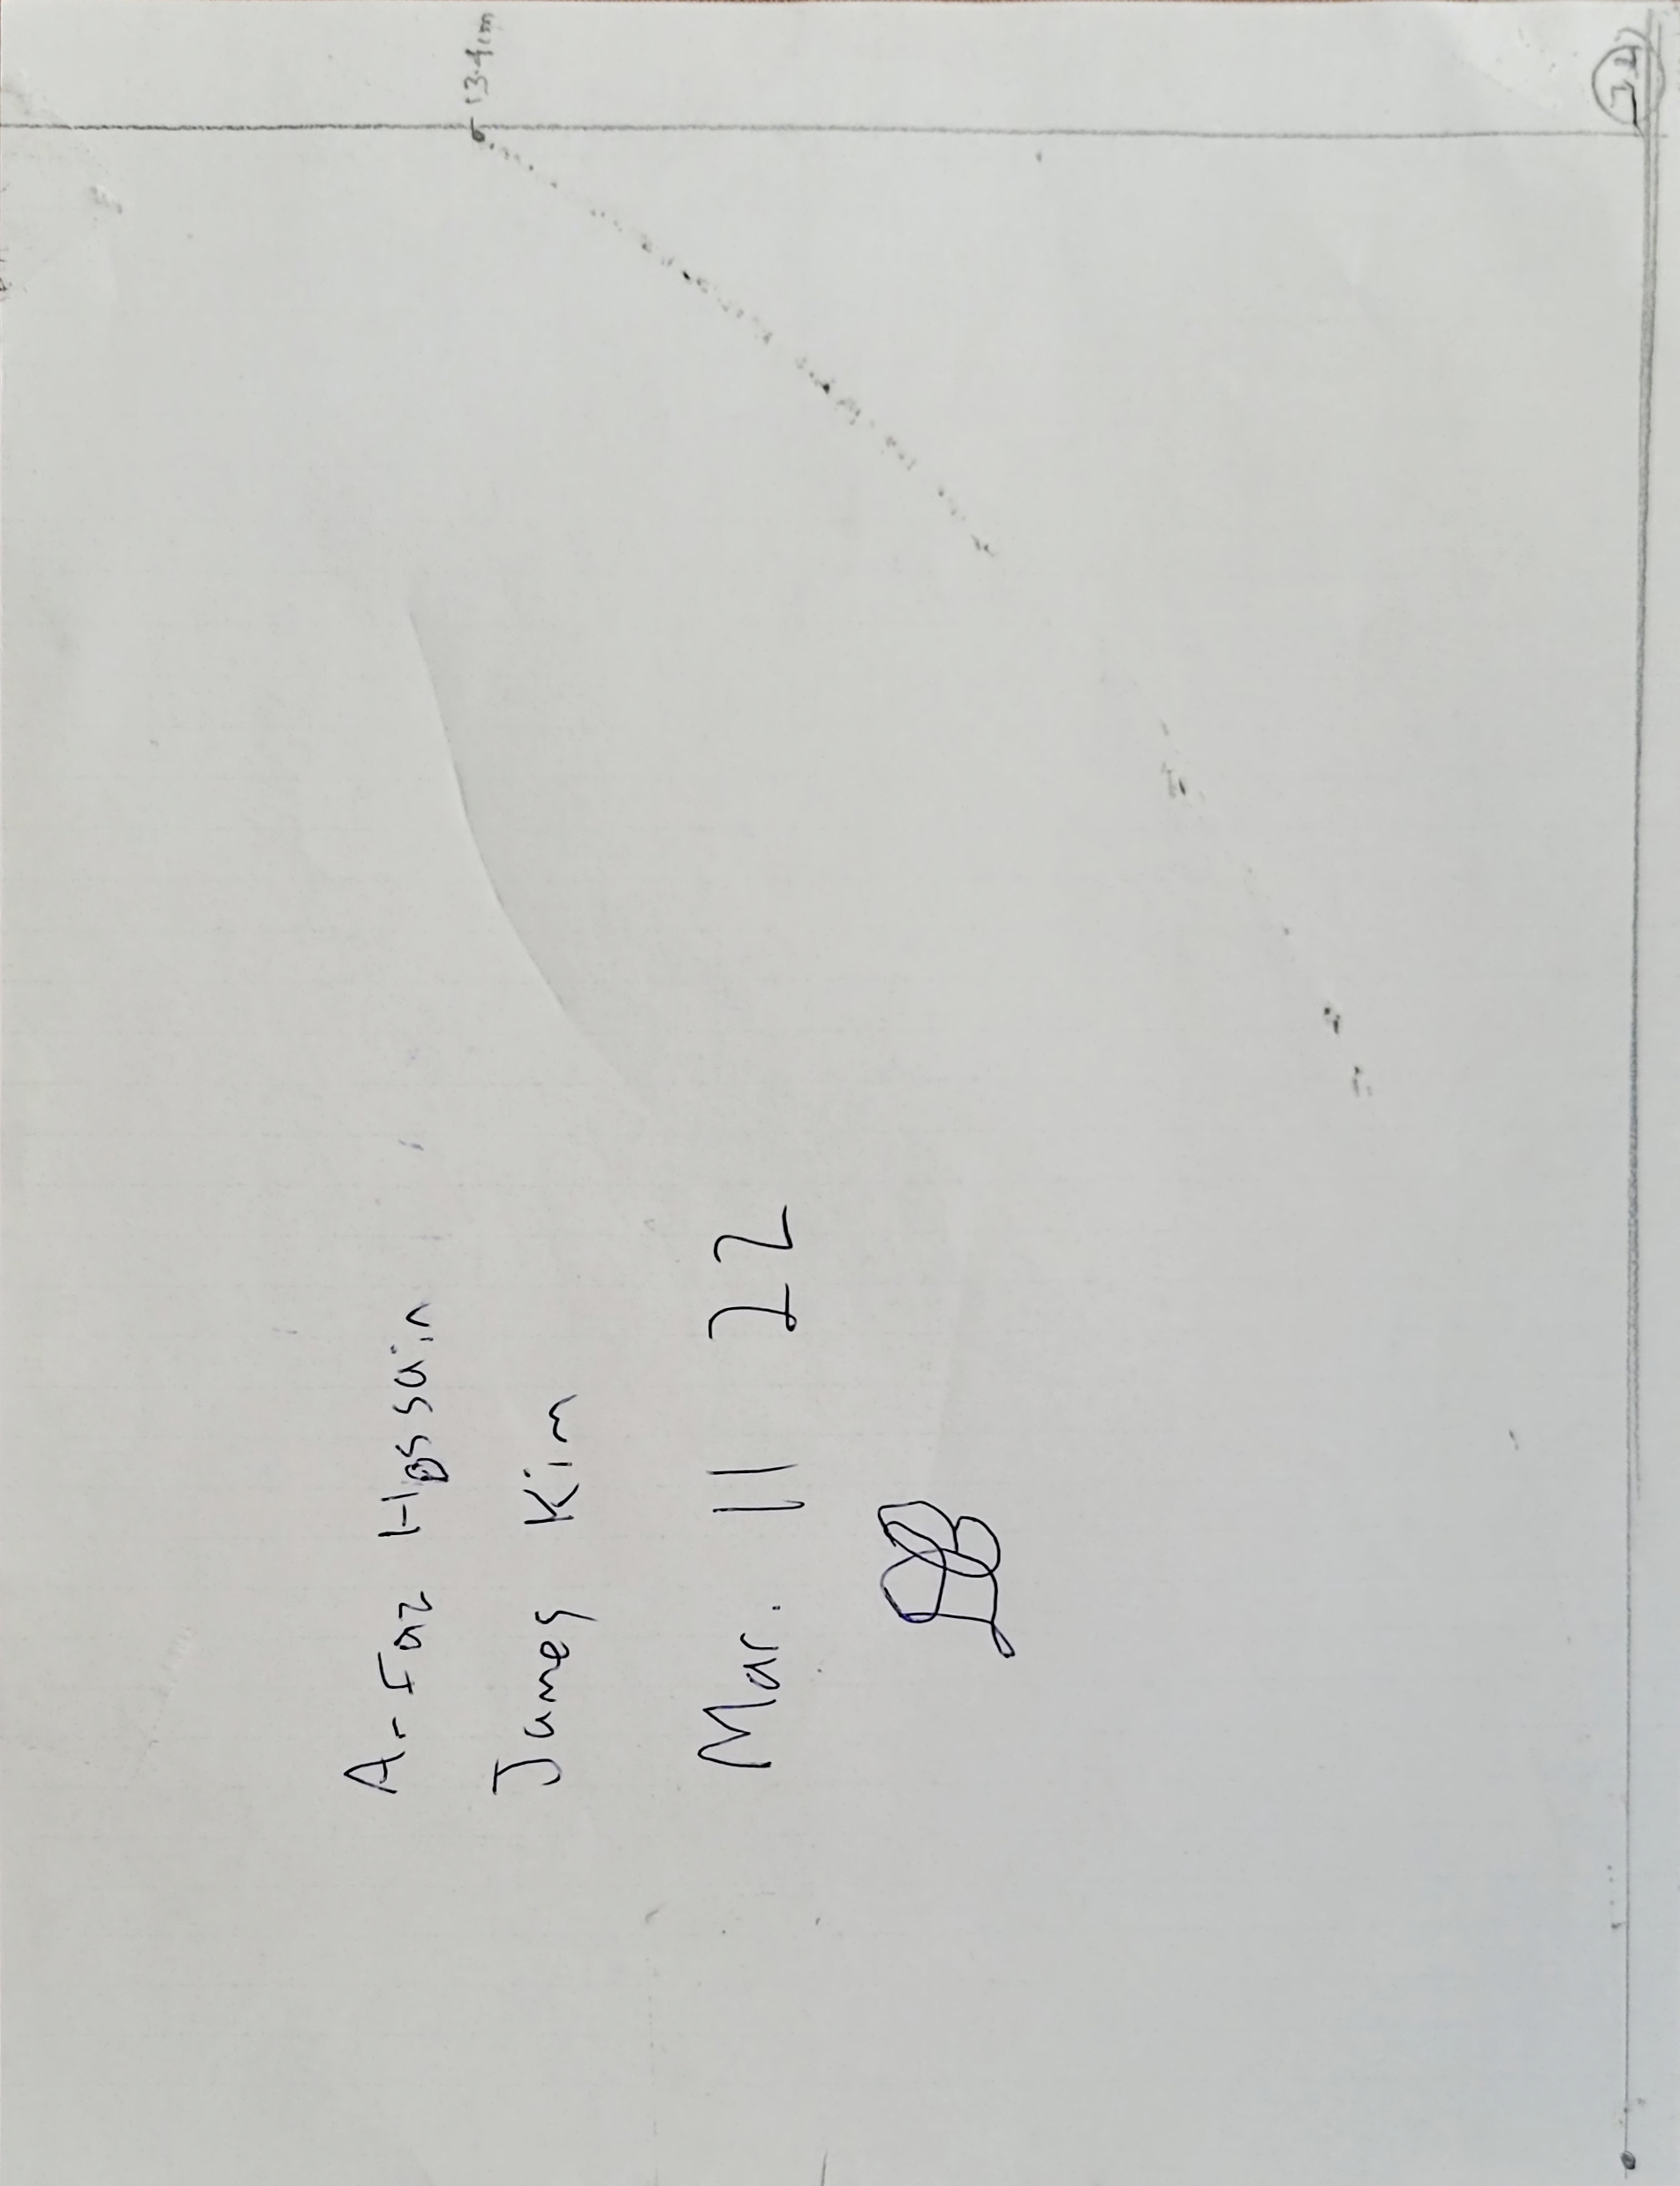 Arfaz Hossain
James Kim
Mar. 11 22
13.4cm